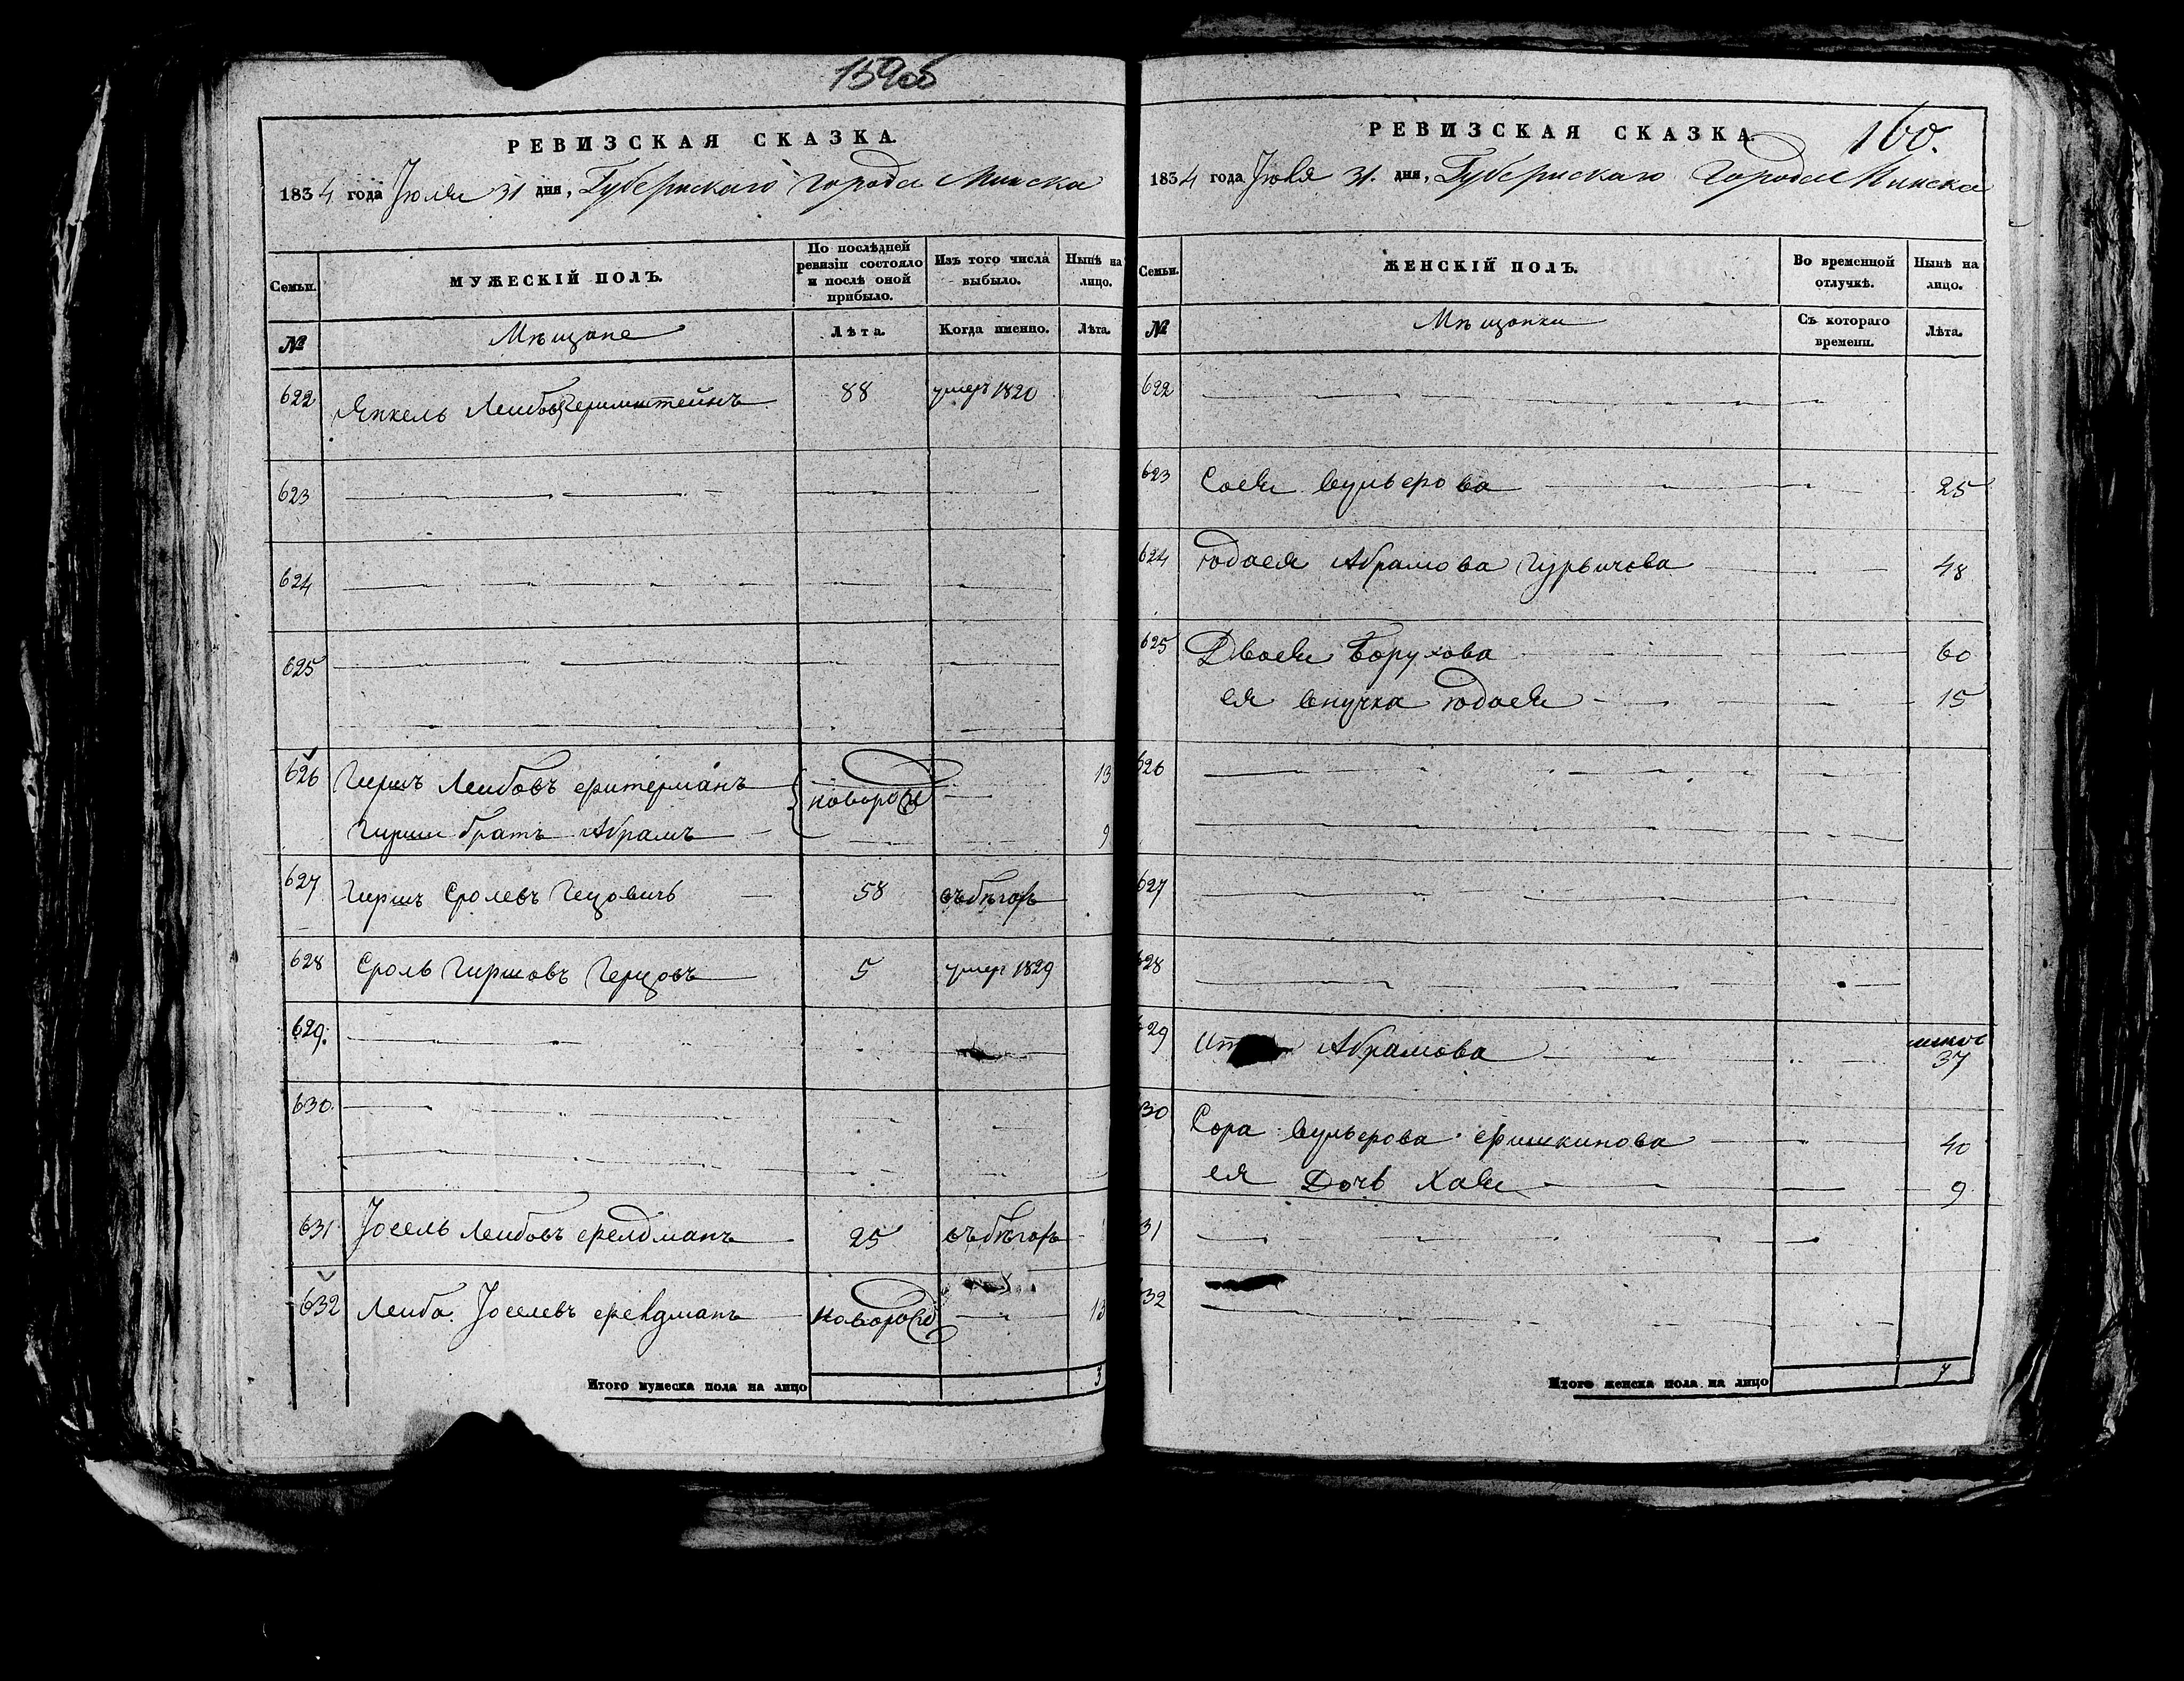 159об
РЕВИЗСКАЯ СКАЗКА.
1834 года Іюля 31 дня, Губернскаго города Минска
Семьи. МУЖЕСКІЙ ПОЛЪ. По послѣдней ревизіи состояло и послѣ оной прибыло. Изъ того числа выбыло. Нынѣ на лицо.
№ Мѣщане Лѣта. Когда именно. Лѣта.
622 Янкель Лейбовъ 88 умеръ 1820
623
624
625
626 Гиршъ Лейбовъ Фитерманъ новорожд 13
Гирши братъ Абрамъ 9
627 Гиршъ Сролевъ 58 въ бѣгахъ
628 Сроль Гиршовъ Герцовъ 5 умеръ 1829
629.
630.
631 Іосель Лейбовъ Фелдманъ 25 въ бѣгахъ
632 Лейба Іоселевъ Фелдманъ новорожд 13
Итого мужеска пола на лицо 3
160.
РЕВИЗСКАЯ СКАЗКА.
1834 года Іюля 31. дня, Губернскаго города Минска
Семьи. ЖЕНСКІЙ ПОЛЪ. Во временной отлучкѣ. Нынѣ на лицо.
№ Мѣщанки Съ котораго времени. Лѣта.
622
623 25
624 Юдася Абрамова Гурвичова 48
625 Двося Борухова 60
ея внучка Юдася 15
626
627
628
629 Абрамова 37
630 Сора Вульфова Фишкинова 40
ея Дочь Хася 9
631
632
Итого женска пола на лицо 7